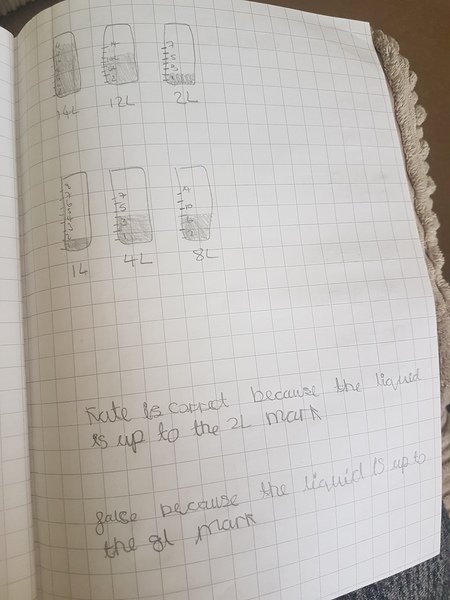 14L 12L 2L
7
5
3
1L 4L 8L
7
5
3
14
10
6
2
Kate is correct because the liquid
is up to the 2L mark
galse because the liquid is up to
the 8l mark